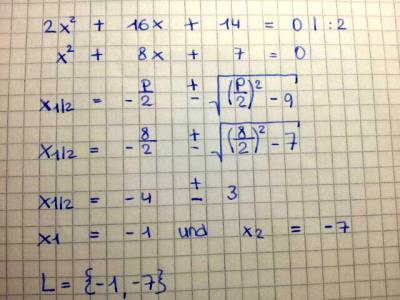 2x² + 16x + 14 = 0 | : 2
x² + 8x + 7 = 0
x1/2 = - p/2 ± √((p/2)² - q)
x1/2 = - 8/2 ± √((8/2)² - 7)
x1/2 = - 4 ± 3
x1 = - 1 und x2 = - 7
L = {-1, -7}